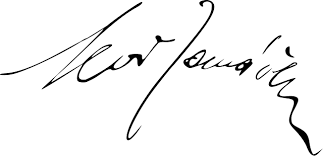 Leoš Janáček